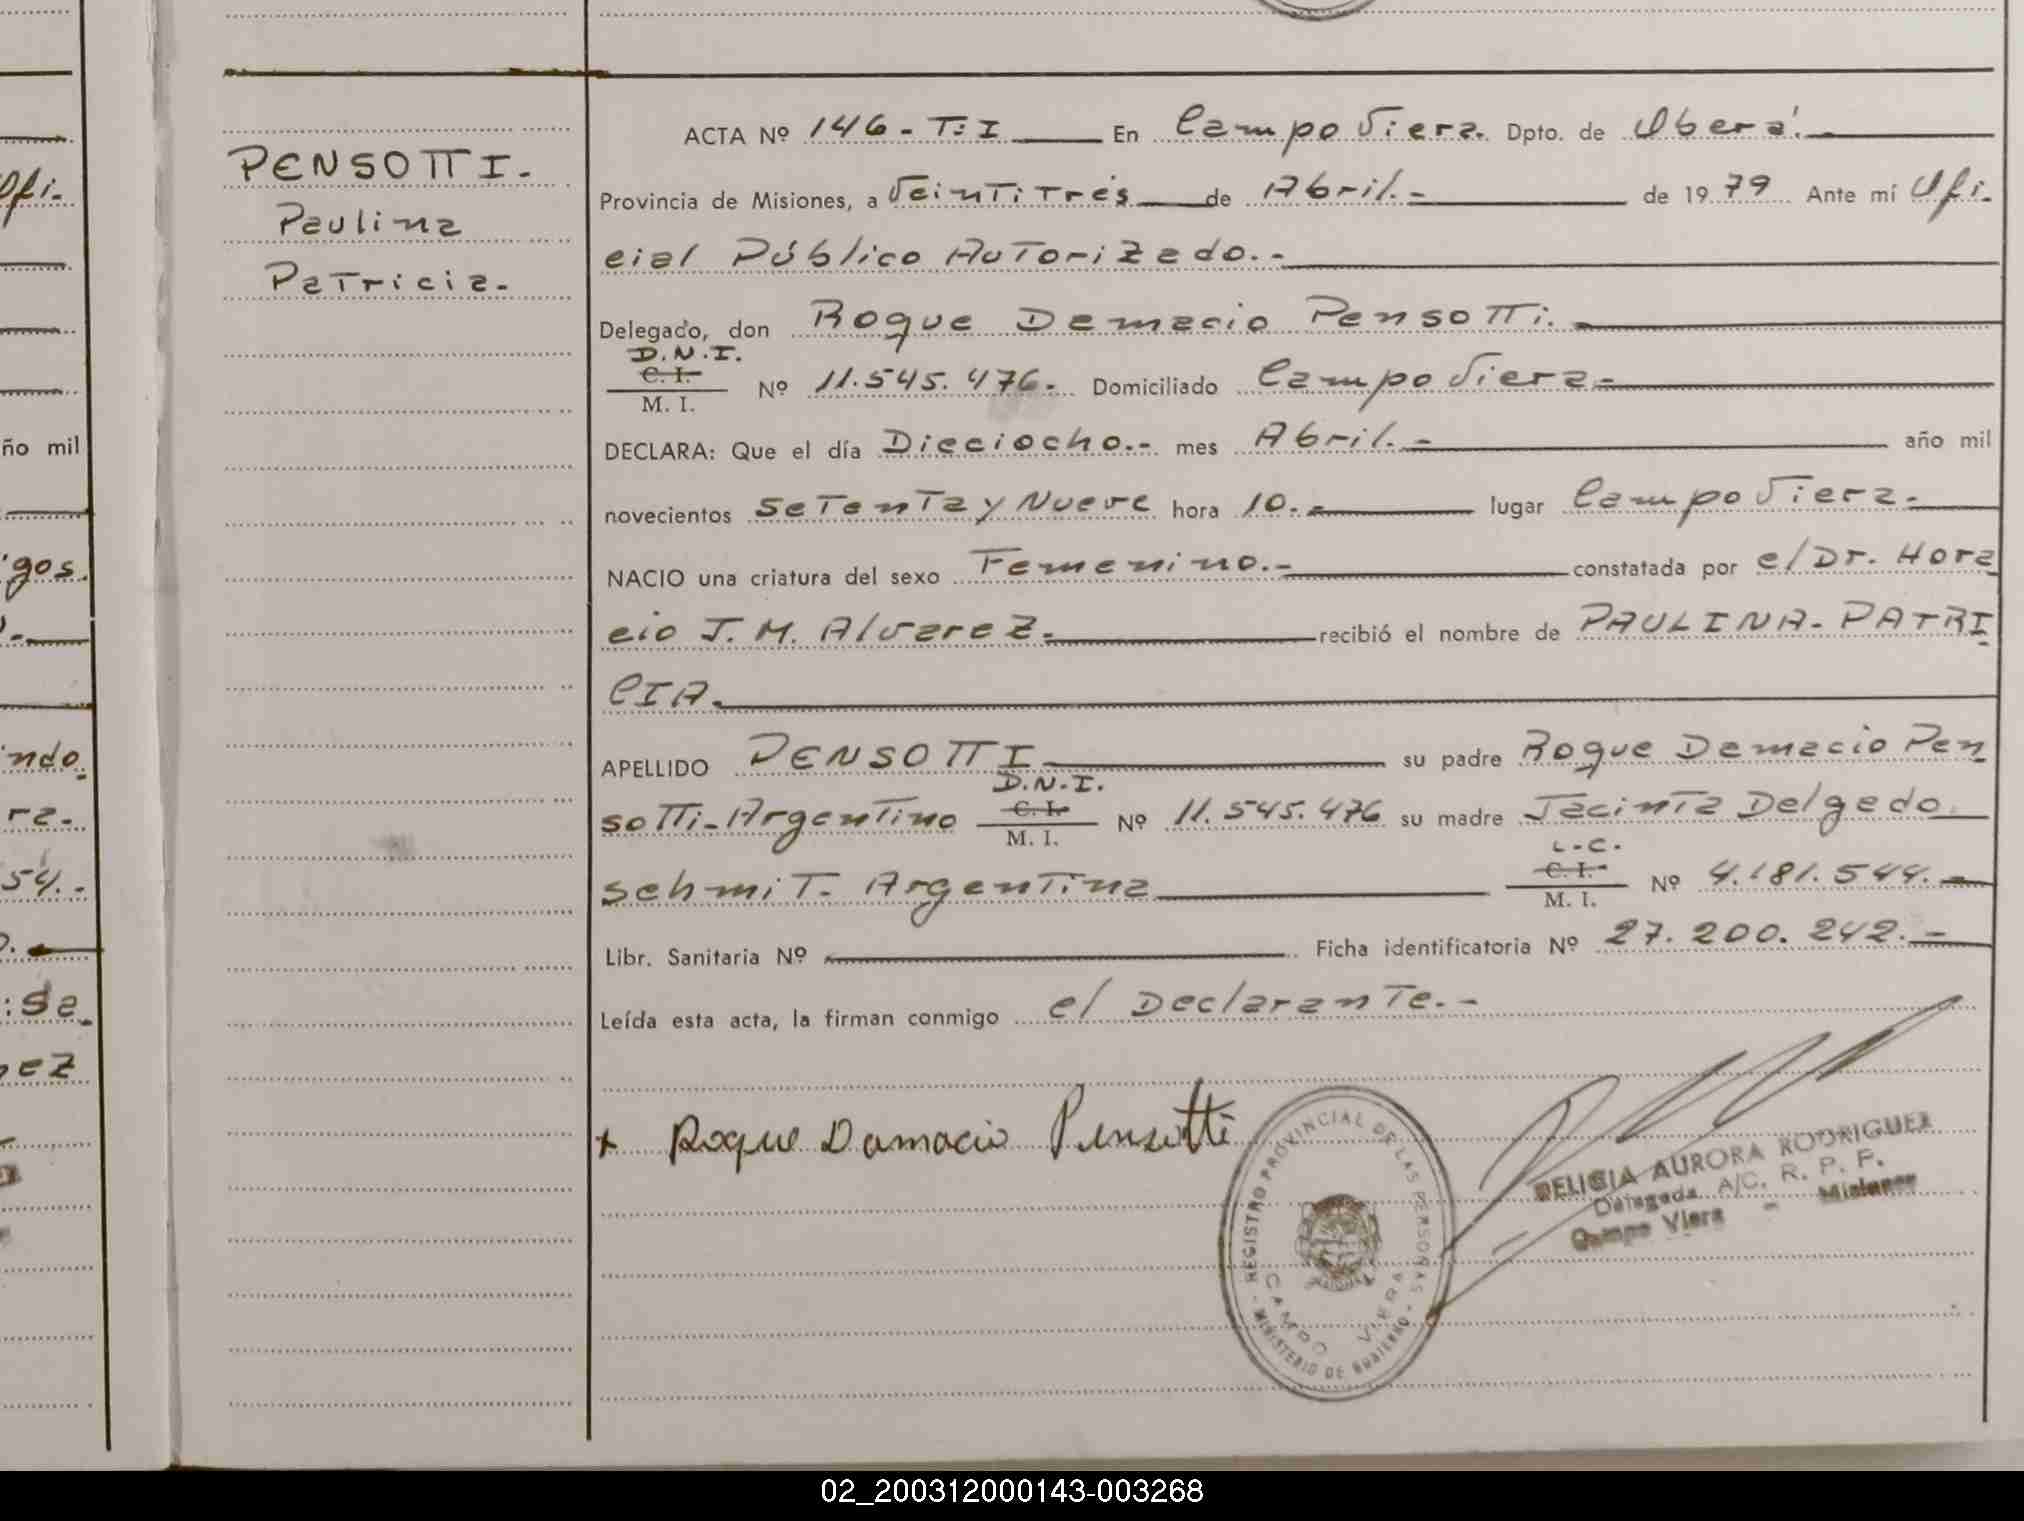 ofi.
ño mil
gos.
ndo.
ra.
54.-
:Sa
nez
PENSOTTI.
Paulina
Patricia.
ACTA Nº 146-T:I En Campo Viera. Dpto. de Oberá.
Provincia de Misiones, a Veintitres de Abril.- de 1979 Ante mí Ofi.
cial Público Autorizado.-
Delegado, don Roque Damacio Pensotti.
D.N.I.
C. I.
M. I.
Nº 11.545.476. Domiciliado Campo Viera.
DECLARA: Que el día Dieciocho.- mes Abril.- año mil
novecientos setenta y Nueve hora 10.- lugar Campo Viera.
NACIO una criatura del sexo Femenino.- constatada por el Dr. Hora
cio J. M. Alvarez. recibió el nombre de PAULINA-PATRI
CIA.
APELLIDO PENSOTTI su padre Roque Damacio Pen
D.N.I.
C. I.
M. I.
sotti-Argentino Nº 11.545.476 su madre Jacinta Delgado
L.C.
C. I.
M. I.
schmit. Argentina Nº 4.181.544.
Libr. Sanitaria Nº Ficha identificatoria Nº 27.200.242.-
Leída esta acta, la firman conmigo el Declarante.-
+ Roque Damacio Pensotti
REGISTRO PROVINCIAL DE LAS PERSONAS
CAMPO VIERA
MINISTERIO DE GOBIERNO
DELICIA AURORA RODRIGUEZ
Delegada A/C. R. P. P.
Campo Viera - Misiones
02_200312000143-003268